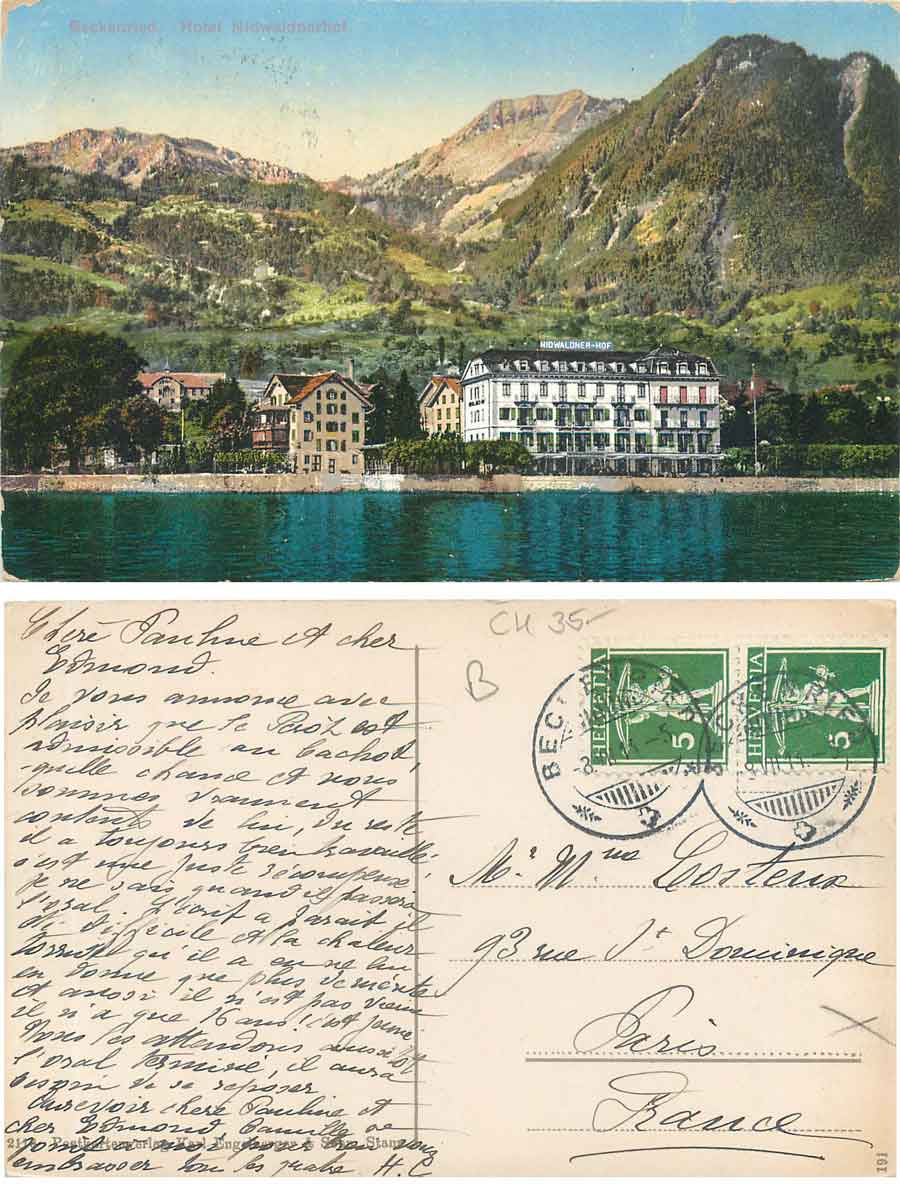 Beckenried. Hotel Nidwaldnerhof
NIDWALDNER-HOF
CH 35-
B
Chère Pauline et cher
Edmond.
Je vous annonce avec
plaisir que le est
admissible au bachot
quelle chance et nous
sommes vraiment
contents de lui, du reste
il a toujours bien travaillé,
c'est une juste récompense,
je ne sais quand il passera
l'oral. L'écrit a parait il
été difficile et la chaleur
torride qu'il a eu ne lui
en donne que plus de mérite
et aussi il n'est pas vieux
il n'a que 16 ans! c'est jeune
Nous les attendons aussitôt
l'oral terminé, il aura
besoin de se reposer
Aurevoir chère Pauline et
cher Edmond Camille se
joint à moi pour bien vous
embrasser tous les H. C
2113 Postkartenverlag Karl Engelberger & Sohn, Stans
HELVETIA
5
HELVETIA
5
BECKENRIED
BECKENRIED
Mr Mme Costeux
93 rue St Dominique
Paris
France
191